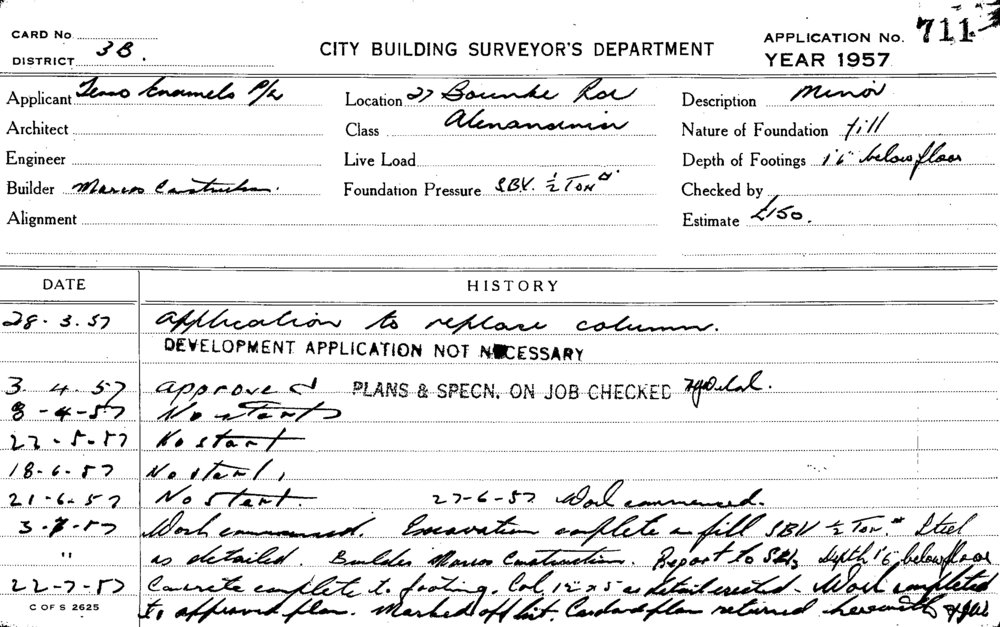 CARD No
DISTRICT 3B.
CITY BUILDING SURVEYOR'S DEPARTMENT
APPLICATION No. 711
YEAR 1957
Applicant Enamels P/L
Location 27 Bourke Roa
Description Minor
Architect
Class Alexandria
Nature of Foundation fill
Engineer
Live Load
Depth of Footings 1'6" below floor
Builder Marcos Construction.
Foundation Pressure SBV. ½ Ton
Checked by
Alignment
Estimate £150.
DATE HISTORY
28.3.57 Application to replace column.
DEVELOPMENT APPLICATION NOT NECESSARY
3.4.57 Approved PLANS & SPECN. ON JOB CHECKED
8-4-57 No start
22-5-57 No start
18-6-57 No start,
21-6-57 No start. 27-6-57 Work commenced.
3-7-57 Work commenced. Excavation complete in fill SBV ½ Ton Steel
" as detailed. Builder Marcos Construction. Report to Depth 1'6" below floor
22-7-57 Concrete complete to footing. Col 12" x 5" as detail erected - Work completed
C OF S 2625
to approved plan. Marked off list. Card and plan returned herewith